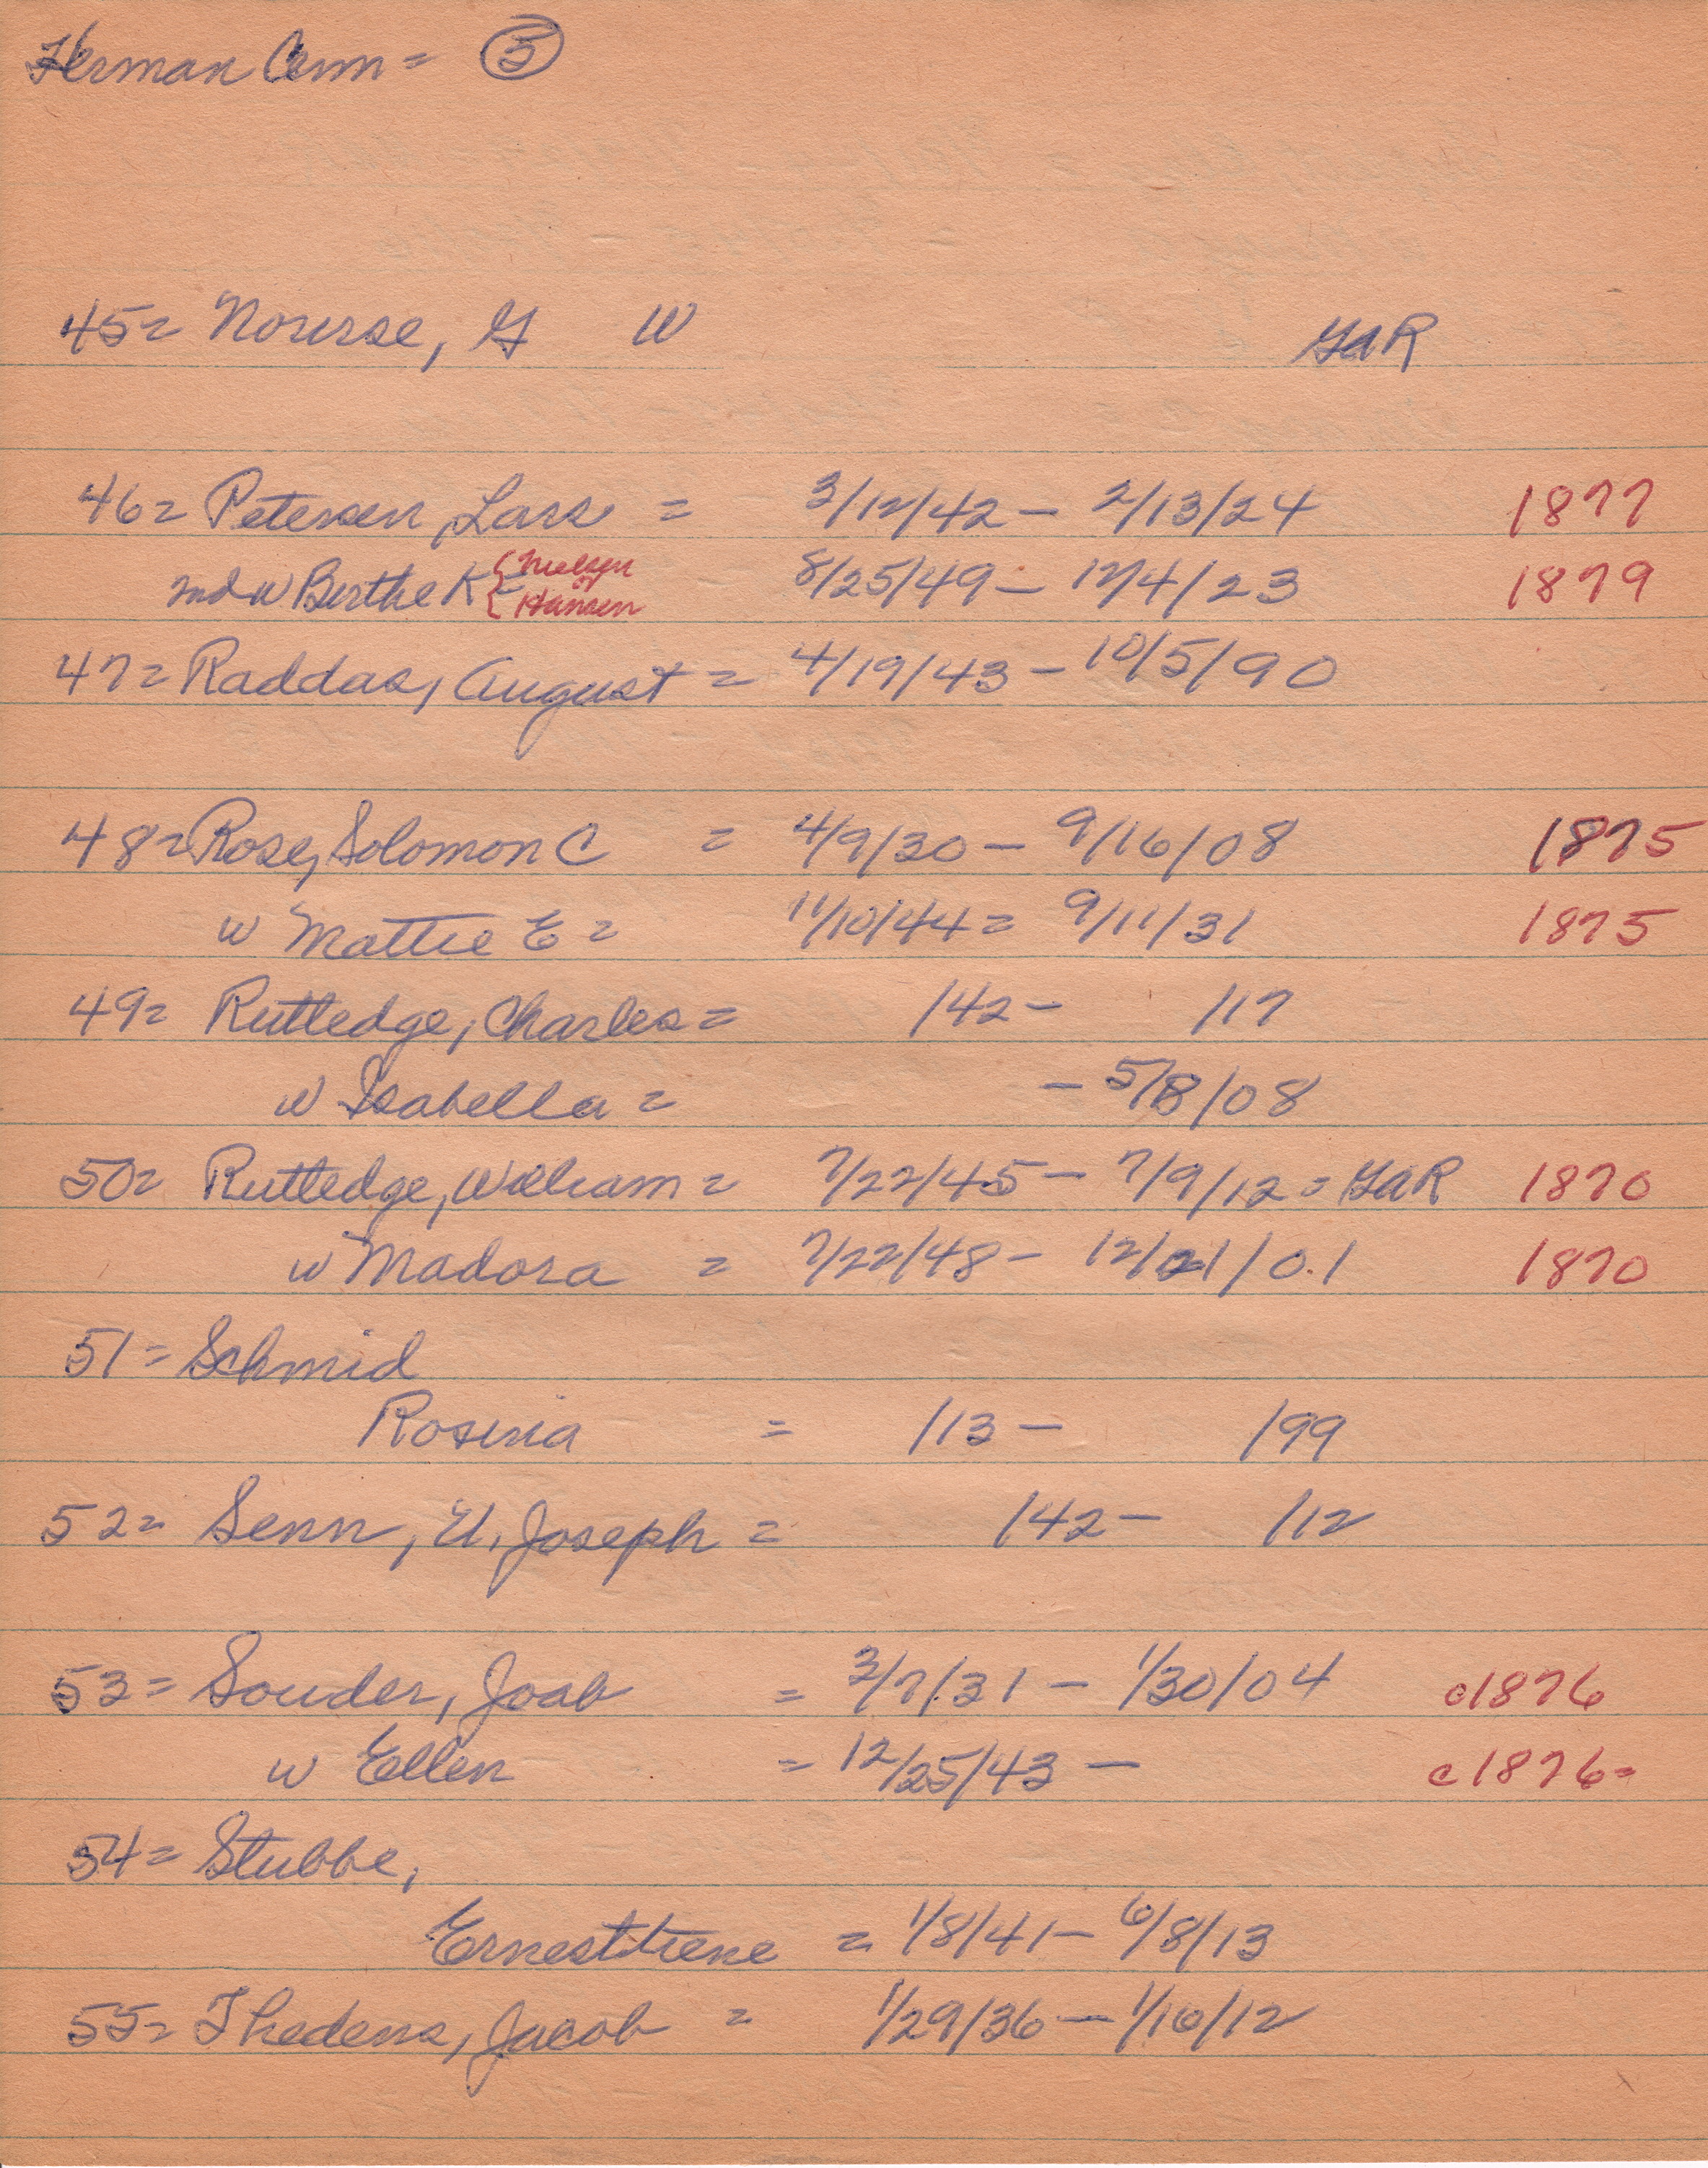 Herman Cem = 5
45= Nourse, G W GAR
46= Petersen, Lars = 3/12/42 - 2/13/24 1877
2nd w Berthe K = { Nielsen or Hansen 8/25/49 - 12/4/23 1879
47= Raddas, August = 4/19/43 - 10/5/90
48= Rose, Solomon C = 4/9/30 - 9/16/08 1875
w Mattie E = 11/10/44 = 9/11/31 1875
49= Rutledge, Charles = /42 - /17
w Isabella = - 5/8/08
50= Rutledge, William = 7/22/45 - 7/9/12 = GAR 1870
w Madora = 7/22/48 - 12/21/01 1870
51= Schmid
Rosina = /13 - /99
52= Senn, U. Joseph = /42 - /12
53= Souder, Joab = 3/7/31 - 1/30/04 c1876
w Ellen = 12/25/43 - c1876=
54= Stubbe,
Ernesttiene = 1/8/41 - 6/8/13
55= Thedens, Jacob = 1/29/36 - 1/10/12